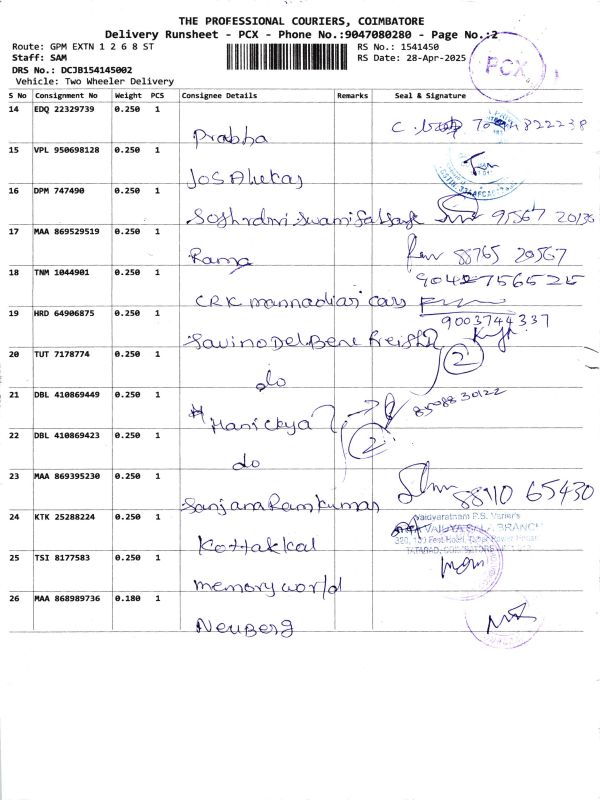 THE PROFESSIONAL COURIERS, COIMBATORE
Delivery Runsheet - PCX - Phone No.:9047080280 - Page No.:2
Route: GPM EXTN 1 2 6 8 ST
RS No.: 1541450
Staff: SAM
RS Date: 28-Apr-2025
DRS No.: DCJB154145002
Vehicle: Two Wheeler Delivery
PCX
S No Consignment No Weight PCS Consignee Details Remarks Seal & Signature
14 EDQ 22329739 0.250 1
Prabha
15 VPL 950698128 0.250 1
16 DPM 747490 0.250 1
9567 20136
17 MAA 869529519 0.250 1
Rama 88765 20567
18 TNM 1044901 0.250 1
9042756525
CRK mannadiar cars
19 HRD 64906875 0.250 1
9003744337
Savino Del Bene Freight
20 TUT 7178774 0.250 1
do 2
21 DBL 410869449 0.250 1
85088 30122
Manickya
22 DBL 410869423 0.250 1
do 2
23 MAA 869395230 0.250 1
Sanjana Ramkumar 88110 65430
24 KTK 25288224 0.250 1
Vaidyaratnam P.S. Varier's
Kottakkal
25 TSI 8177583 0.250 1
memory world
26 MAA 868989736 0.180 1
Neuberg